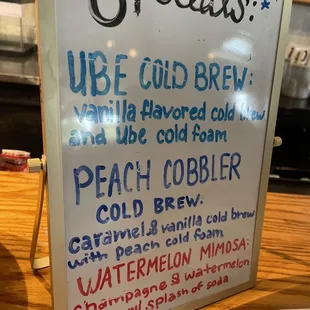 Specials:*
UBE COLD BREW:
vanilla flavored cold brew
and Ube cold foam
PEACH COBBLER
COLD BREW:
caramel & vanilla cold brew
with peach cold foam
WATERMELON MIMOSA:
champagne & watermelon
w/ splash of soda